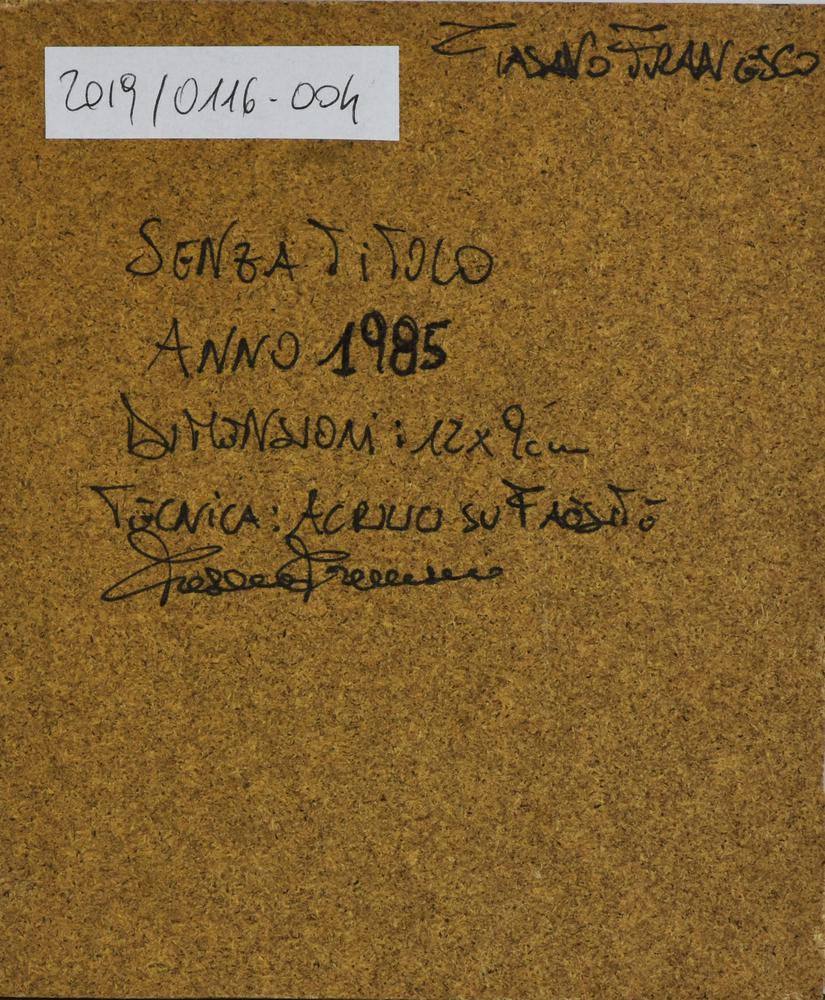 2019/0116-004
FRANCESCO
SENZA TITOLO
ANNO 1985
DIMENSIONI: 12x9cm
TECNICA: ACRILICO SU FAESITE
Francesco